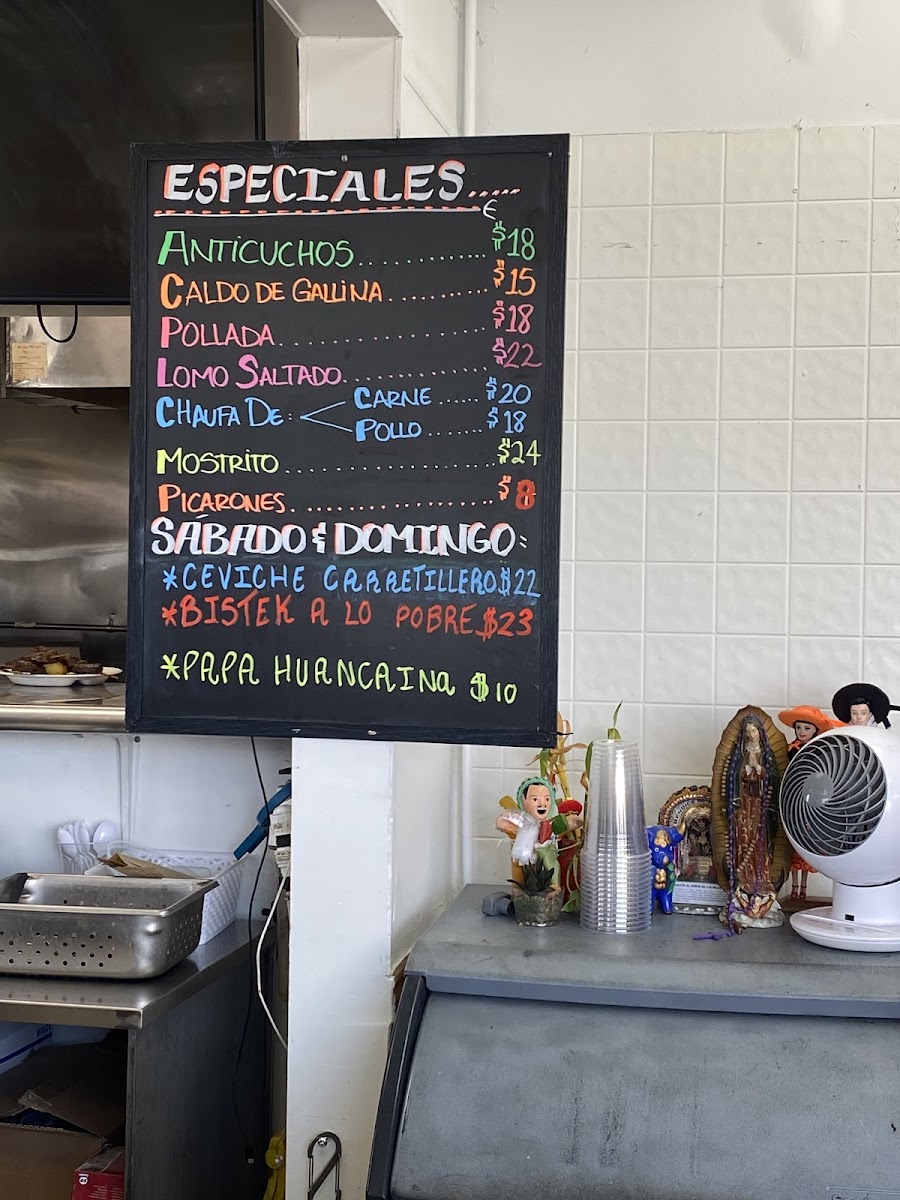 ESPECIALES.....
ANTICUCHOS.............$18
CALDO DE GALLINA...........$15
POLLADA.....................$18
LOMO SALTADO.............$22
CHAUFA DE: CARNE......$20
POLLO.......$18
MOSTRITO.......................$24
PICARONES.....................$8
SÁBADO & DOMINGO:
*CEVICHE CARRETILLERO $22
*BISTEK A LO POBRE $23
*PAPA HUANCAINA $10